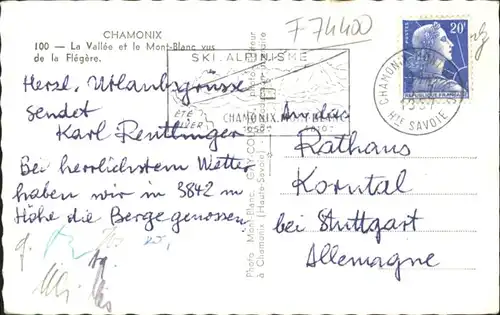 CHAMONIX
100 - La Vallée et le Mont-Blanc vus
de la Flégère.
F 74400
SKI. ALPINISME
ÉTÉ
HIVER
CHAMONIX
20F
POSTES
RÉPUBLIQUE FRANÇAISE
CHAMONIX
Hte SAVOIE
Herzl. Urlaubsgrüsse
sendet
Karl Reutlinger
Bei herrlichstem Wetter
haben wir in 3842 m
Höhe die Berge genossen.
Photo Mont-Blanc
à Chamonix (Haute-Savoie)
An das
Rathaus
Korntal
bei Stuttgart
Allemagne